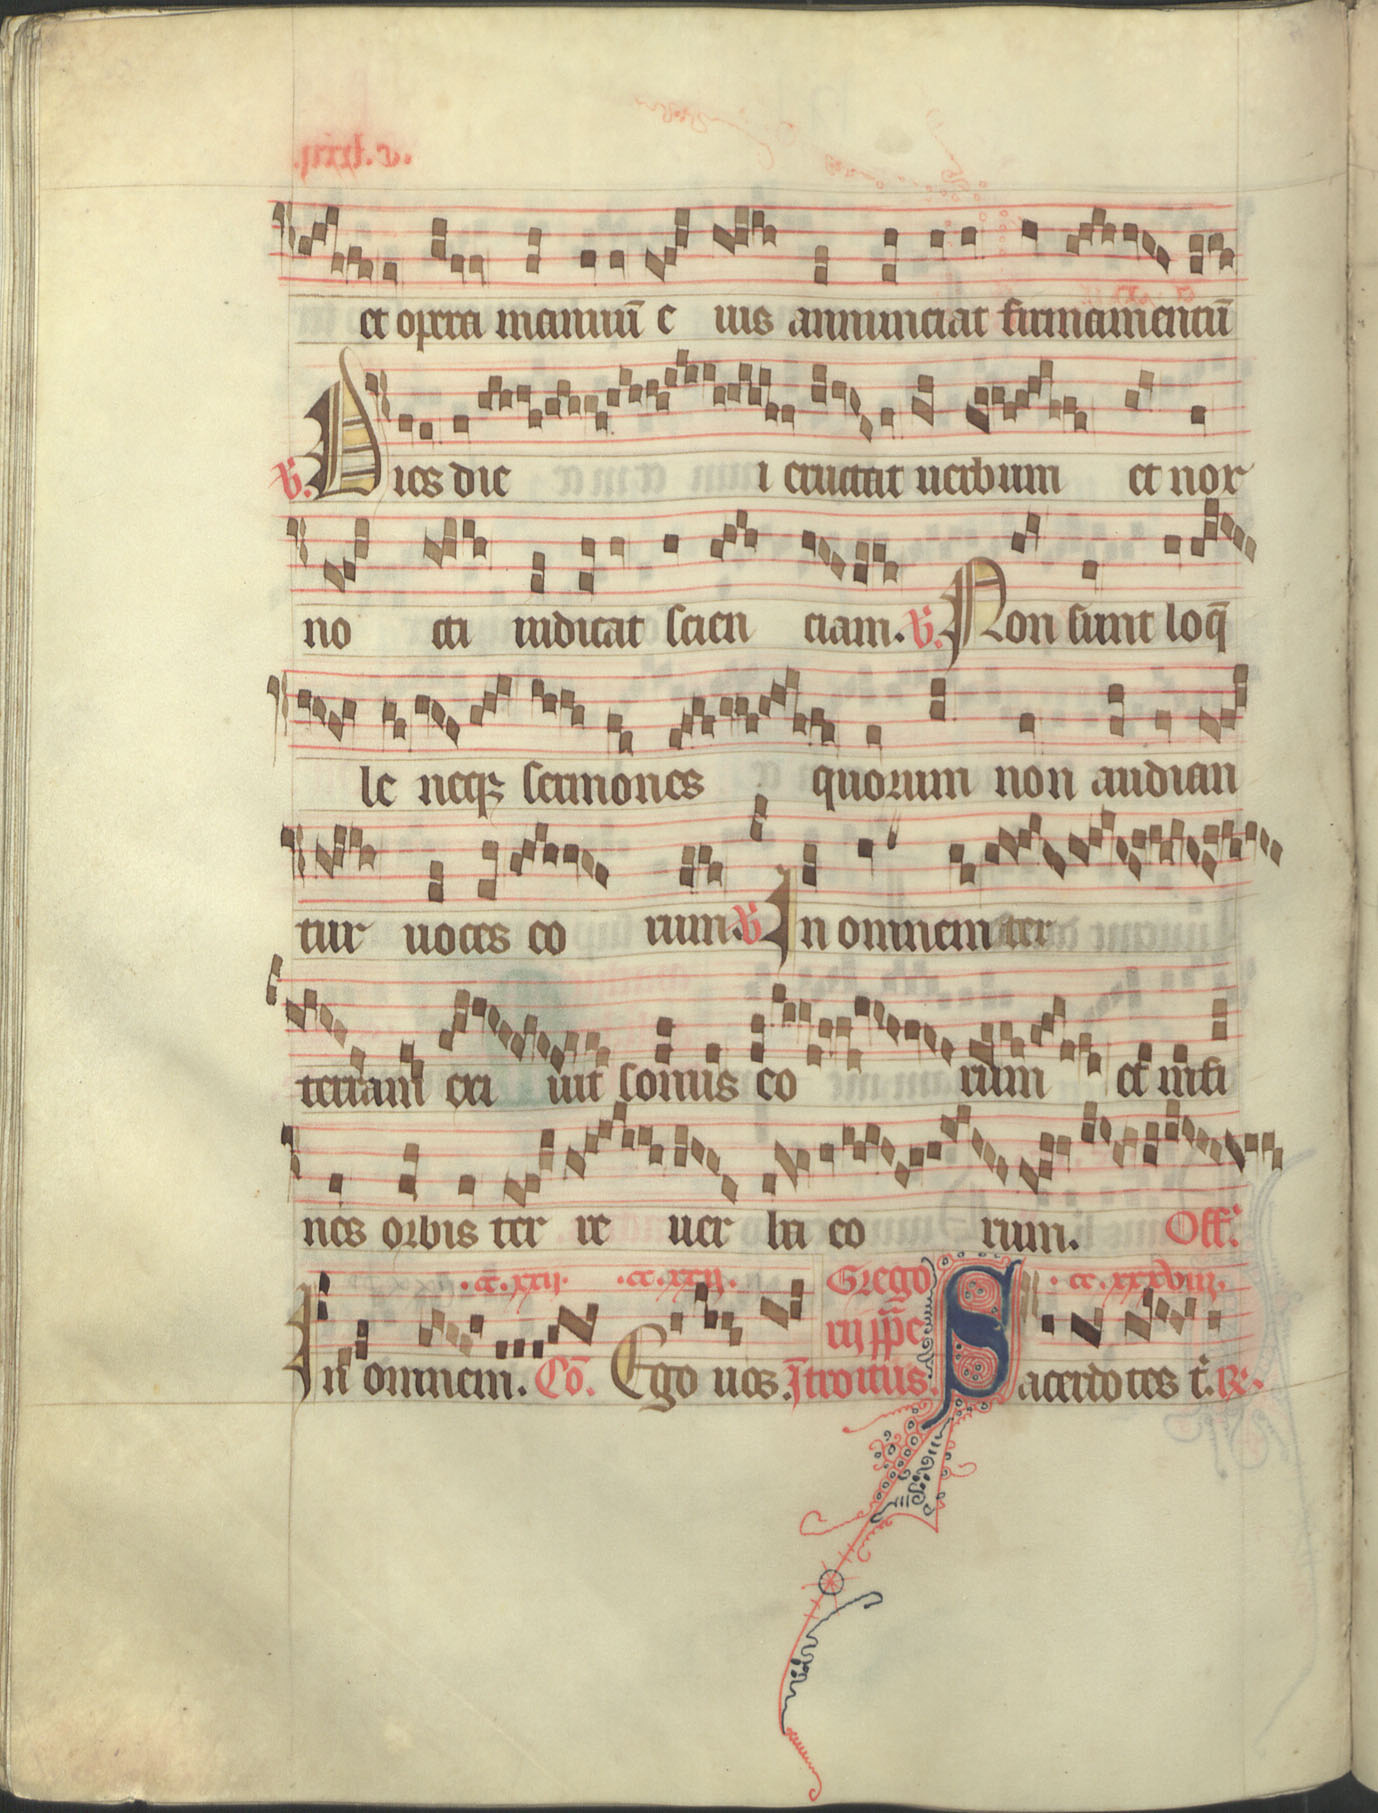 et opera manuū e ius annunciat firmamentū
℣. Dies die i eructat uerbum et nox
no cti indicat scien ciam. ℣. Non sunt loq̄
le neqꝫ sermones quorum non audian
tur uoces eo rum. ℣ In omnem ter
terram exi uit sonus eo rum et in fi
nes orbis ter re uer ba eo rum. Off.
.cc.xxij. .cc.xxij. Grego .cc.xxxviii.
rij pp̄e
In omnem. Cō. Ego uos. Introitus. Sacerdotes t. ℟.